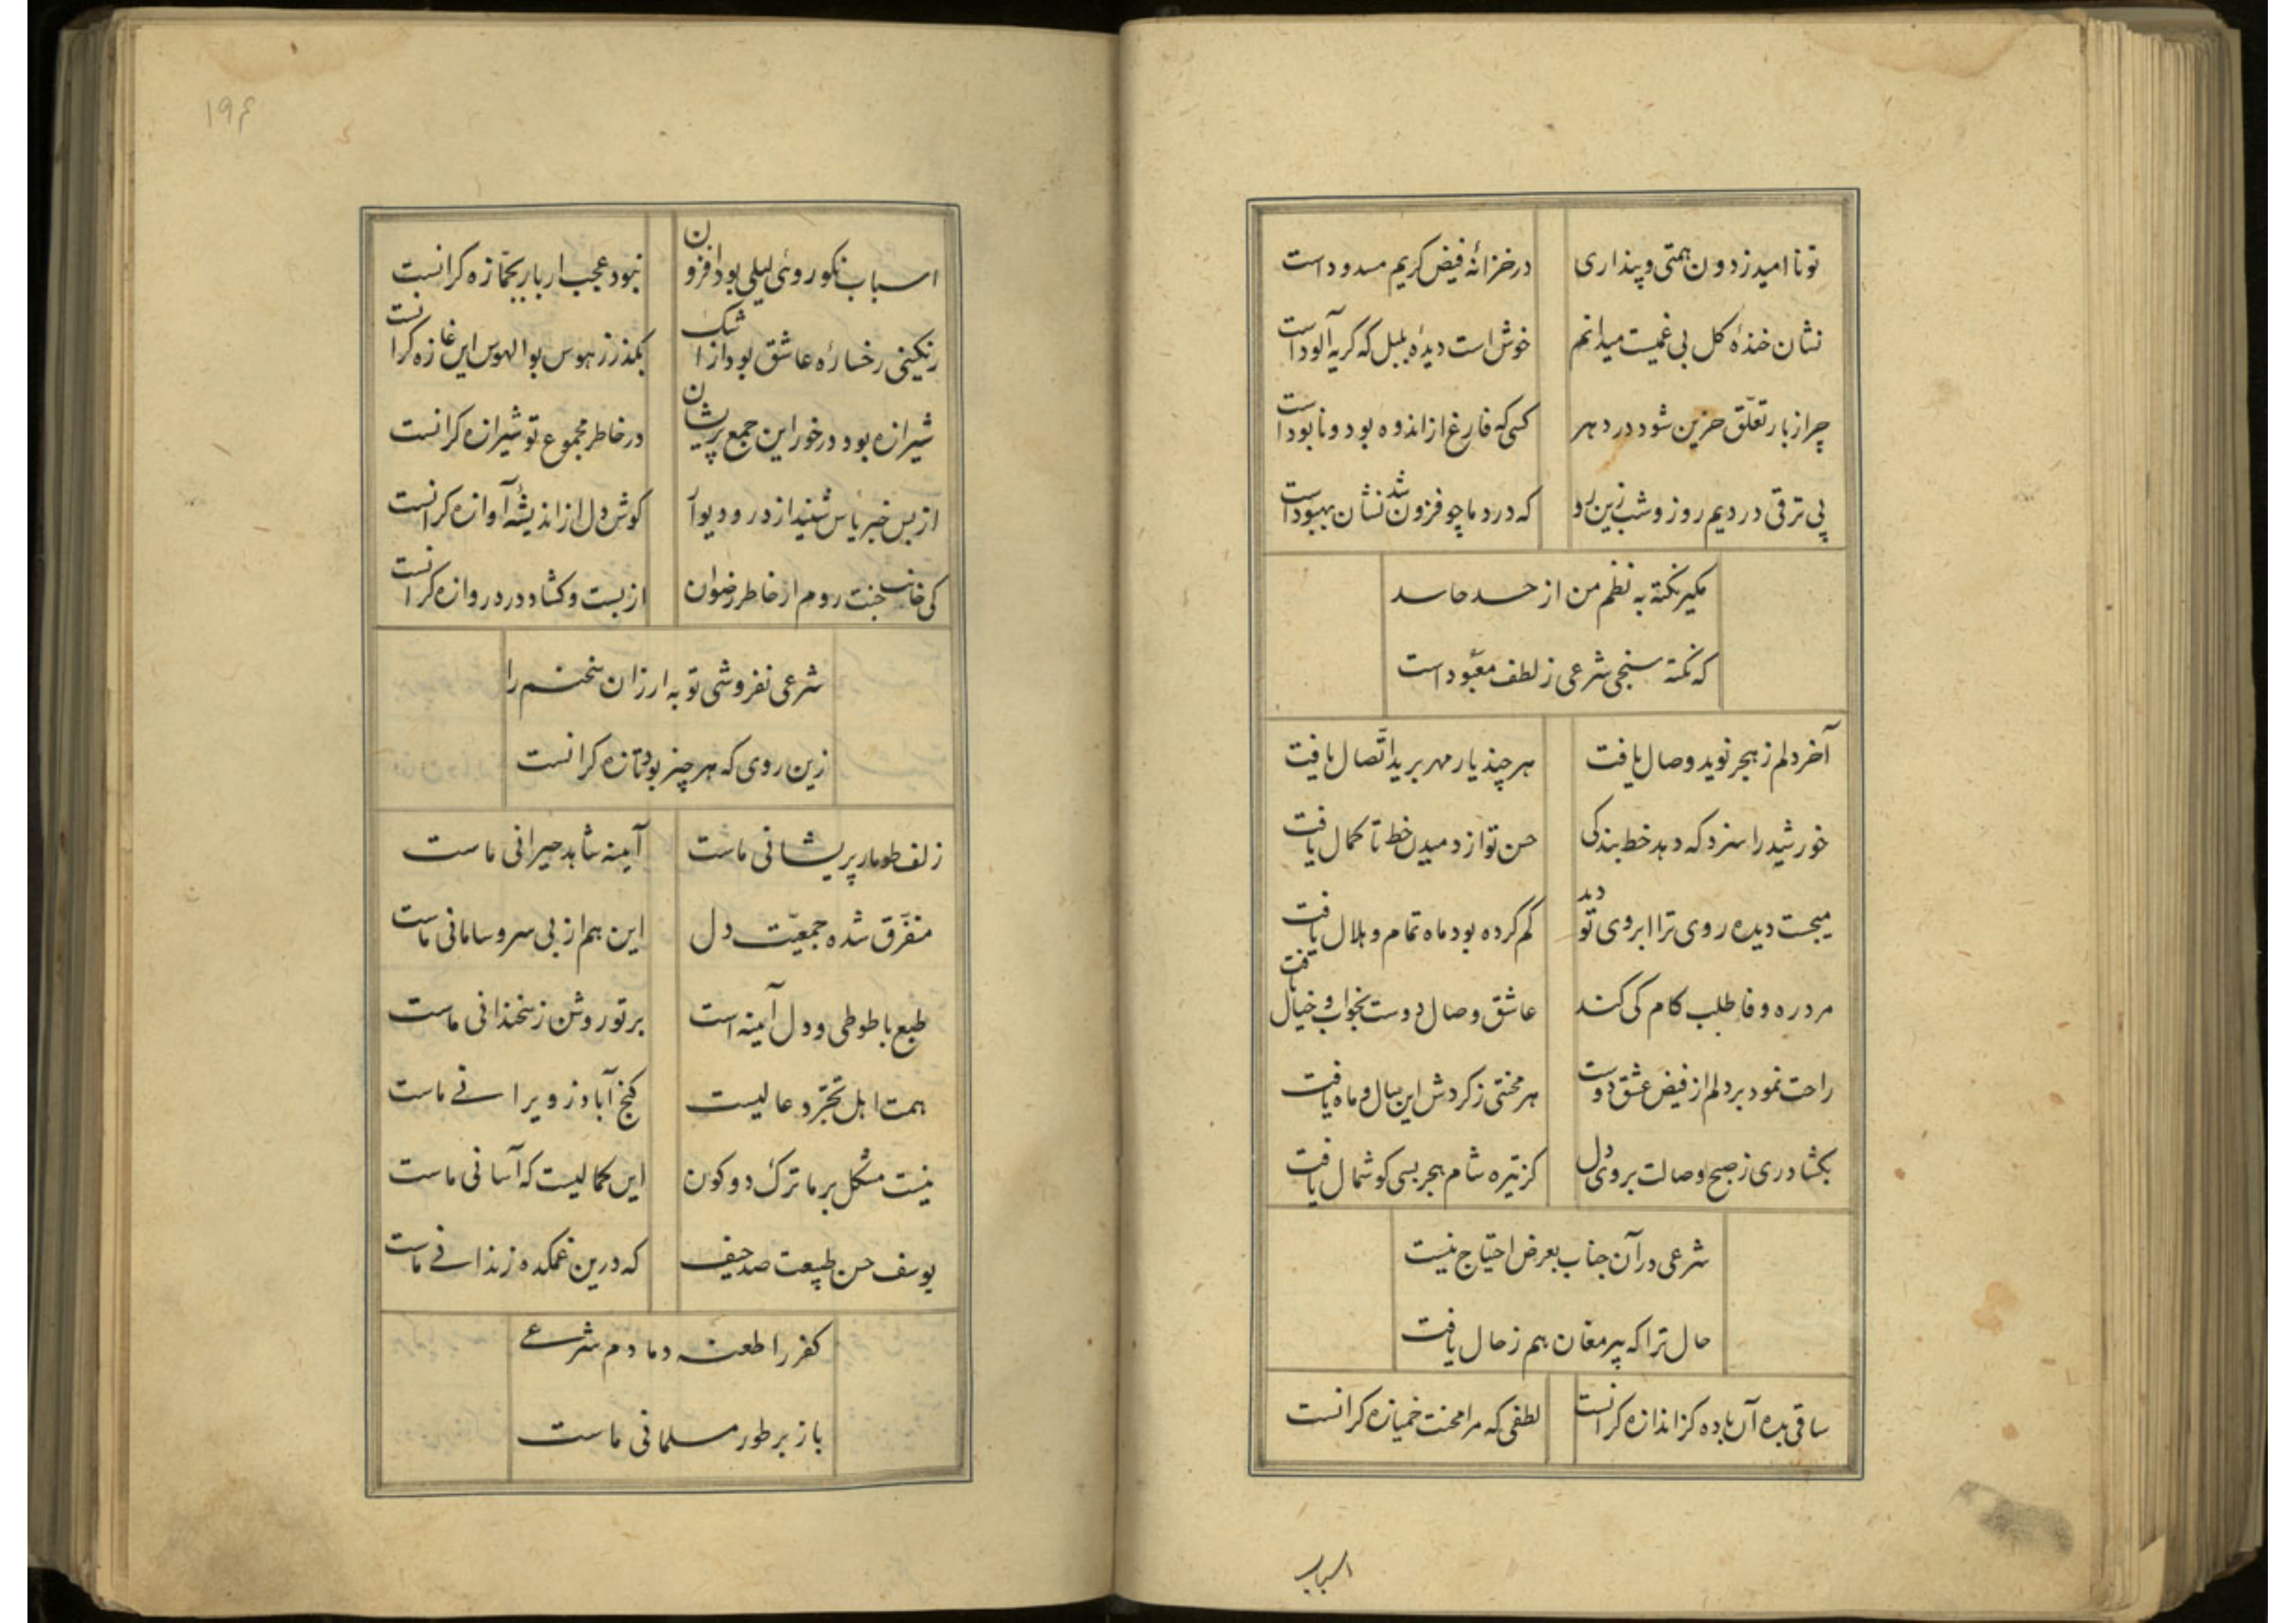 تو نا امید ز دون همتی و پنداری
در خزانهٔ فیض کریم مسدود است
نشان خندهٔ کل بی غمیست میدانم
خوش است دیدهٔ بلبل که گریه آلود است
چرا ز بار تعلّق حزین شود در دهر
کسی که فارغ از اندوه بود و نابود است
پی ترقی دردیم روز و شب زین رو
که درد ما چو فزون شد نشان بهبود است
مگیر نکته به نظم من از حسد حاسد
که نکته سنجی شرعی ز لطف معبود است
آخر دلم ز هجر نوید وصال یافت
هر چند یار مهر برید اتّصال یافت
خورشید را سزد که دهد خط بندکی
حسن تو از دمیدن خط تا کمال یافت
میجست دیده روی ترا ابروی تو دید
کم کرده بود ماه تمام و هلال یافت
مرد ره وفا طلب کام کی کند
عاشق وصال دوست بخواب و خیال یافت
راحت نمود بر دلم از فیض عشق دوست
هر محنتی ز کردش این سال و ماه یافت
بکشا دری ز صبح وصالت بروی دل
کز تیره شام هجر بسی کوشمال یافت
شرعی در آن جناب بعرض احتیاج نیست
حال ترا که پیر مغان هم ز حال یافت
ساقی بده آن باده کز اندازه کرانست
لطفی که مرا محنت خمیازه کرانست
اسباب
۱۹۶
اسباب نکو روئی لیلی بود افزون
نبود عجب ار بار بجمّازه کرانست
رنکینی رخسارهٔ عاشق بود از اشک
بکذر ز هوس بوالهوس این غازه کرانست
شیرازه بود در خور این جمع پریشان
در خاطر مجموع تو شیرازه کرانست
از بس خبر یاس شنید از در و دیوار
کوش دل از اندیشهٔ آوازه کرانست
کی جانب جنت روم از خاطر رضوان
از بست و کشاد در دروازه کرانست
شرعی نفروشی تو به ارزان سخنم را
زین روی که هر چیز بود تازه کرانست
زلف طومار پریشانی ماست
آینه شاهد حیرانی ماست
متفرّق شده جمعیّت دل
این هم از بی سر و سامانی ماست
طبع با طوطی و دل آینه است
بر تو روشن ز سخندانی ماست
همت اهل تجرّد عالیست
کنج آباد ز ویرانی ماست
نیست مشکل بر ما ترک دو کون
این کمالیست که آسانی ماست
یوسف حسن طبیعت صد حیف
که درین غمکده زندانی ماست
کفر را طعنه دمادم شرعی
باز بر طور مسلمانی ماست